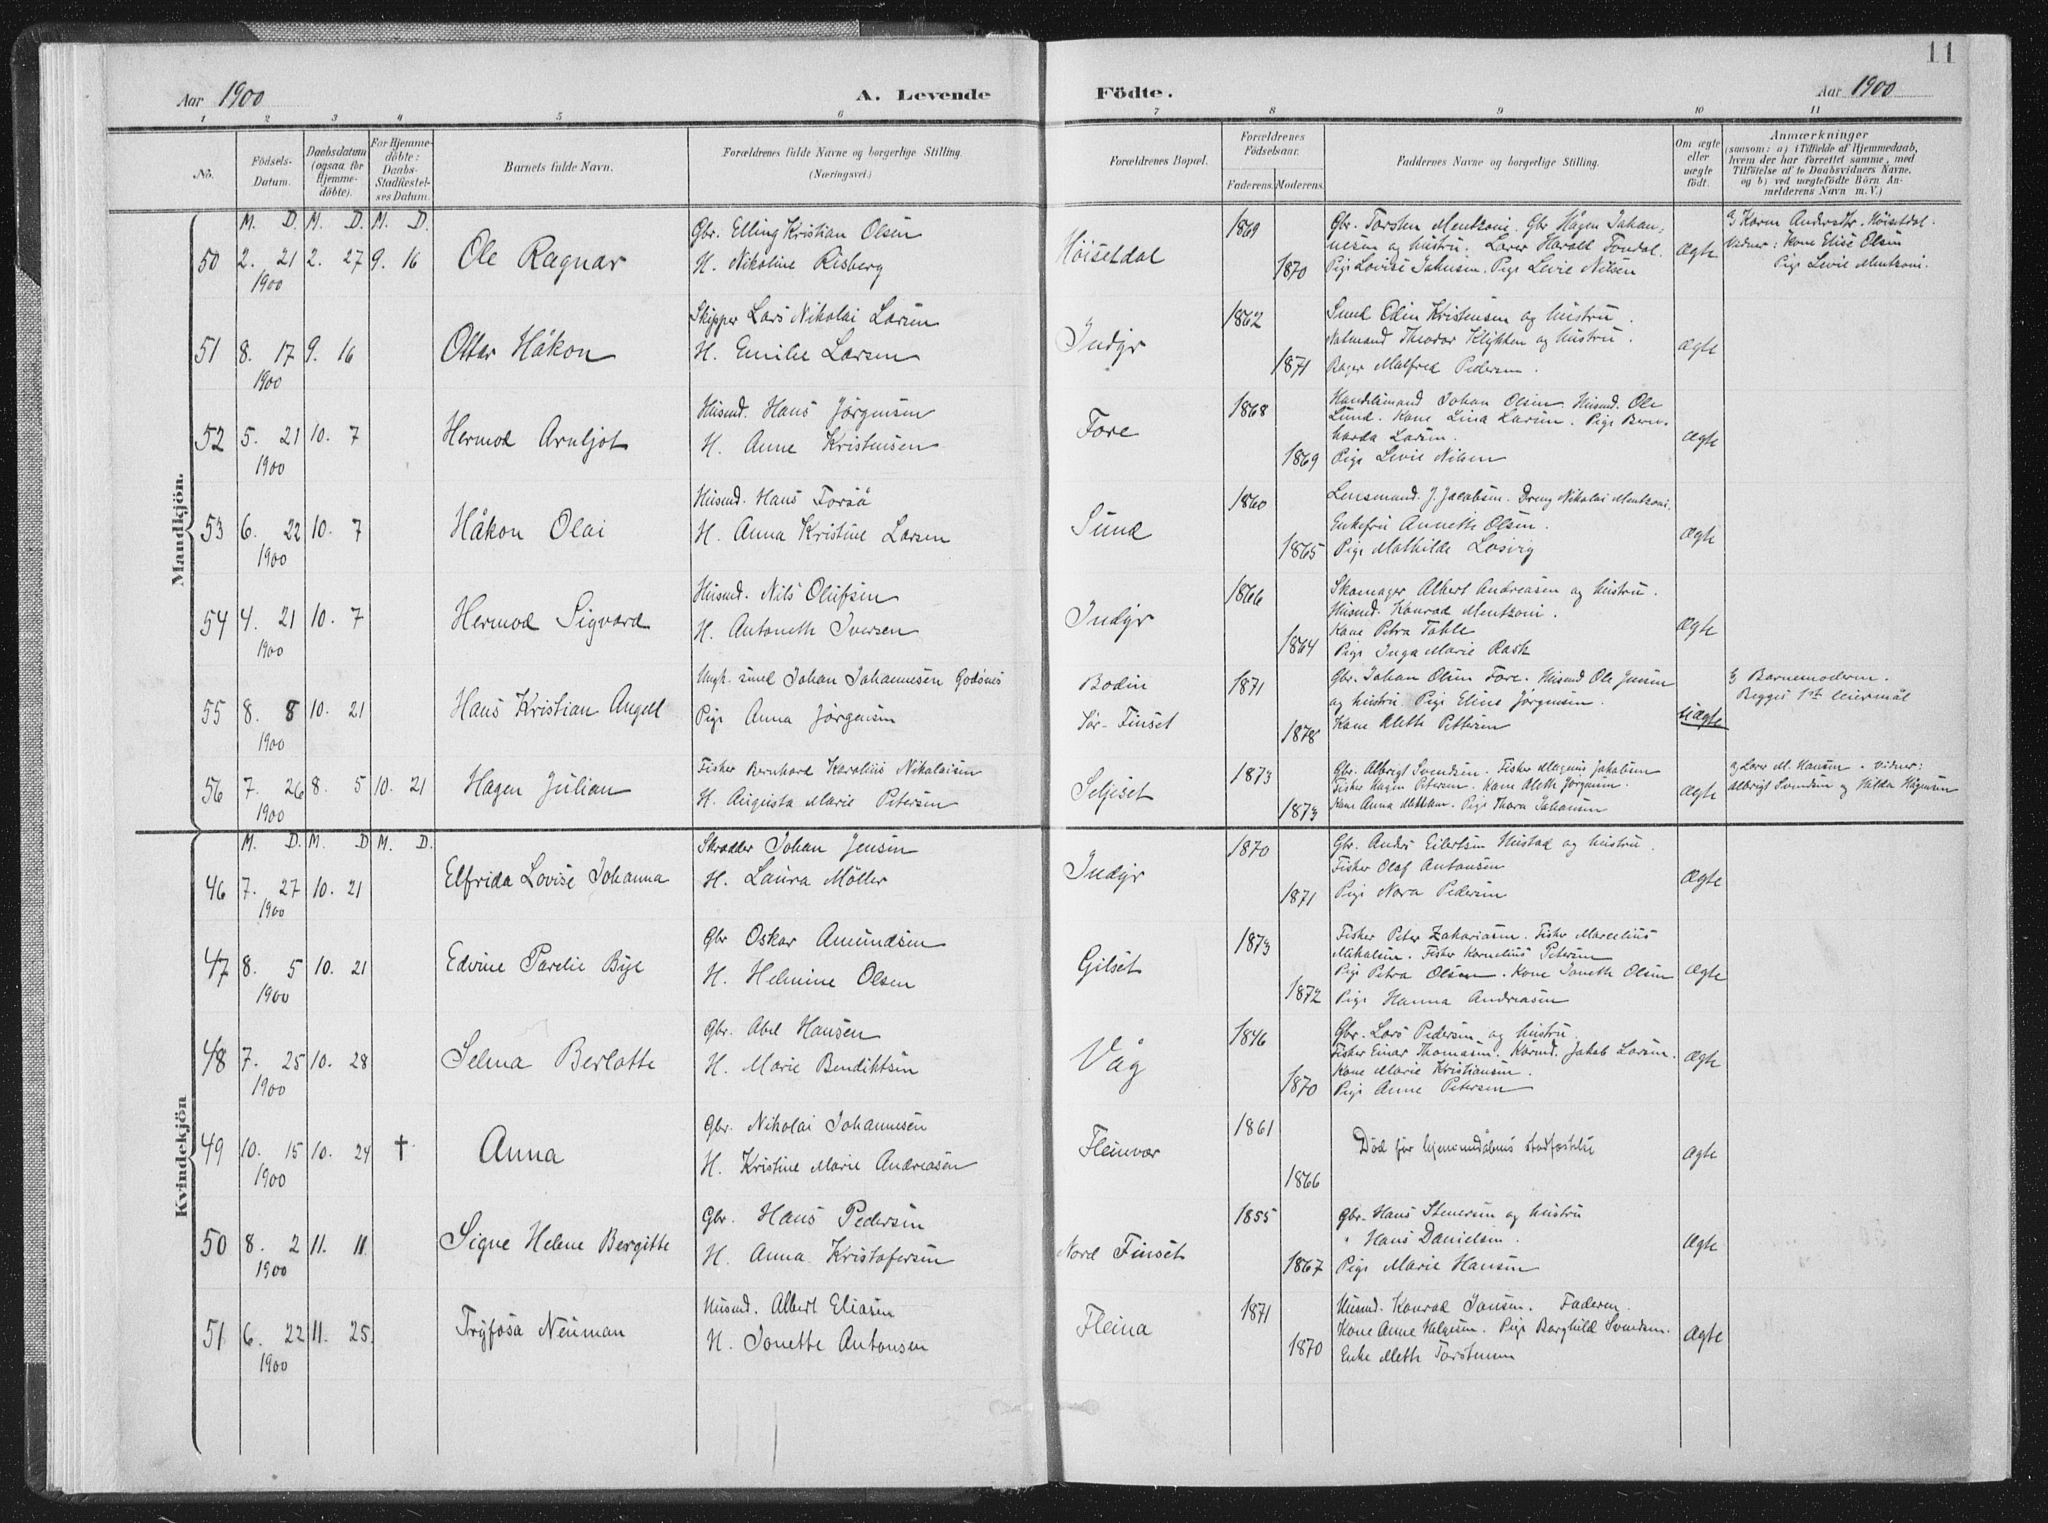 11
Aar 1900 A. Levende Födte. Aar 1900
1 2 3 4 5 6 7 8 9 10 11
No. Födsels-Datum. Daabsdatum (ogsaa för Hjemmedöbte). For Hjemmedöbte: Daabs-Stadfæstelses Datum. Barnets fulde Navn. Forældrenes fulde Navne og borgerlige Stilling. (Næringsvei.) Forældrenes Bopæl. Forældrenes Födselsaar. Faderens. Moderens. Faddernes Navne og borgerlige Stilling. Om ægte eller uægte født. Anmærkninger (saasom: a) i Tilfælde af Hjemmedaab, hvem der har forrettet samme, med Tilföielse af to Daabsvidners Navne, og b) ved uægtefödte Börn Anmelderens Navn m. V.)
Mandkjön.
M. D. M. D. M. D.
50 2. 21 1900 2. 27 9. 16 Ole Ragnar Gbr. Elling Kristian Olsen
H. Nikoline Risberg Höisetdal 1869 1870
Gbr. Torsten Mentzoni. Gbr Hågen Johan-
nesen og hustru. Lærer Harald Fondal.
Pige Lovise Johnsen. Pige Levie Nilsen ægte
Karen Andersdtr. Höisetdal.
Vidner: Kone Elise Olsen
Pige Levie Mentzoni.
51 8. 17 1900 9. 16 Ottar Håkon Skipper Lars Nikolai Larsen
H. Emilie Larsen Indyr 1862 1871
Sund Odin Kristensen og hustru.
Theodor Klykken og hustru.
Bager Malfred Pedersen. ægte
52 5. 21 1900 10. 7 Hermod Arnljot Husmd. Hans Jörgensen
H. Anne Kristensen Fore 1868 1869
Handelsmand Johan Olsen. Husmd. Ole
Lund. Kone Lina Larsen. Pige Bern-
harda Larsen.
Pige Levie Nilsen ægte
53 6. 22 1900 10. 7 Håkon Olai Husmd. Hans Forså
H. Anna Kristine Larsen Sund 1860 1865
Lensmand. J. Jacobsen. Dreng Nikolai Mentzoni.
Enkefru Anneth Olsen.
Pige Mathilde Losvig ægte
54 4. 21 1900 10. 7 Hermod Sigvard Husmd. Nils Olufsen
H. Antoneth Iversen Indyr 1866 1864
Skomager Albert Andreasen og hustru.
Husmd. Konrad Mentzoni.
Kone Petra Table
Pige Inga Marie Rask ægte
55 8. 8 1900 10. 21 Hans Kristian Angell Ungk. Johan Johannesen Godønes
Pige Anna Jörgensen Bodin
Sör-Finset 1871 1878
Gbr. Johan Olsen Fore. Husmd Ole Jensen
og hustru. Pige Eline Jörgensen.
Kone Aleth Pettersen uægte
Barnemoderen.
Begges 1ste leiermål
56 7. 26 1900 8. 5 10. 21 Hagen Julian Fisker Bernhard Karolius Nikolaisen
H. Augusta Marie Petersen Seljeset 1873 1873
Gbr. Albrigt Svendsen. Fisker Magnus Jakobsen
Fisker Hagen Petersen. Kone Aleth Jörgensen.
Kone Anna. Pige Thora Johansen ægte
Lars M. Hansen. Vidner:
Albrigt Svendsen og Valda Hågensen
Kvindekjön
M. D. M. D M. D.
46 7. 27 1900 10. 21 Elfrida Lovise Johanna Skrædder Johan Jensen
H. Laura Möller Indyr 1870 1871
Gbr. Anders Eilertsen Hustad og hustru.
Fisker Olaf Antonsen
Pige Nora Pedersen ægte
47 8. 5 1900 10. 21 Edvine Parelie Bye Gbr Oskar Amundsen
H. Helmine Olsen Gilset 1873 1872
Fisker Peter Zakariasen. Fisker Marcelius
Mikalsen. Fisker Kornelius Petersen
Pige Petra Olsen. Kone Joneth Olsen
Pige Hanna Andreasen ægte
48 7. 25 1900 10. 28 Selma Berlotte Gbr. Abel Hansen
H. Marie Bendiktsen Våg 1846 1870
Gbr. Lars Pedersen og hustru
Fisker Einar Thomasen. Jakob Larsen.
Kone Marie Kristiansen.
Pige Anne Petersen ægte
49 10. 15 1900 10. 24 † Anna Gbr. Nikolai Johannesen
H. Kristine Marie Andreasen Fleinvær 1861 1866
Död för hjemmedåbens stadfæstelse ægte
50 8. 2 1900 11. 11. Signe Helene Bergitte Gbr. Hans Pedersen
H. Anna Kristofersen Nord Finset 1855 1867
Gbr. Hans Stenersen og hustru
" Hans Danielsen.
Pige Marie Hansen ægte
51 6. 22 1900 11. 25. Tryfosa Neuman Husmd. Albert Eliasen
H. Jonette Antonsen Fleina 1871 1870
Husmd. Konrad Jansen. Faderen.
Kone Anne Helgesen. Pige Borghild Svendsen.
Enke Meth Torstensen ægte